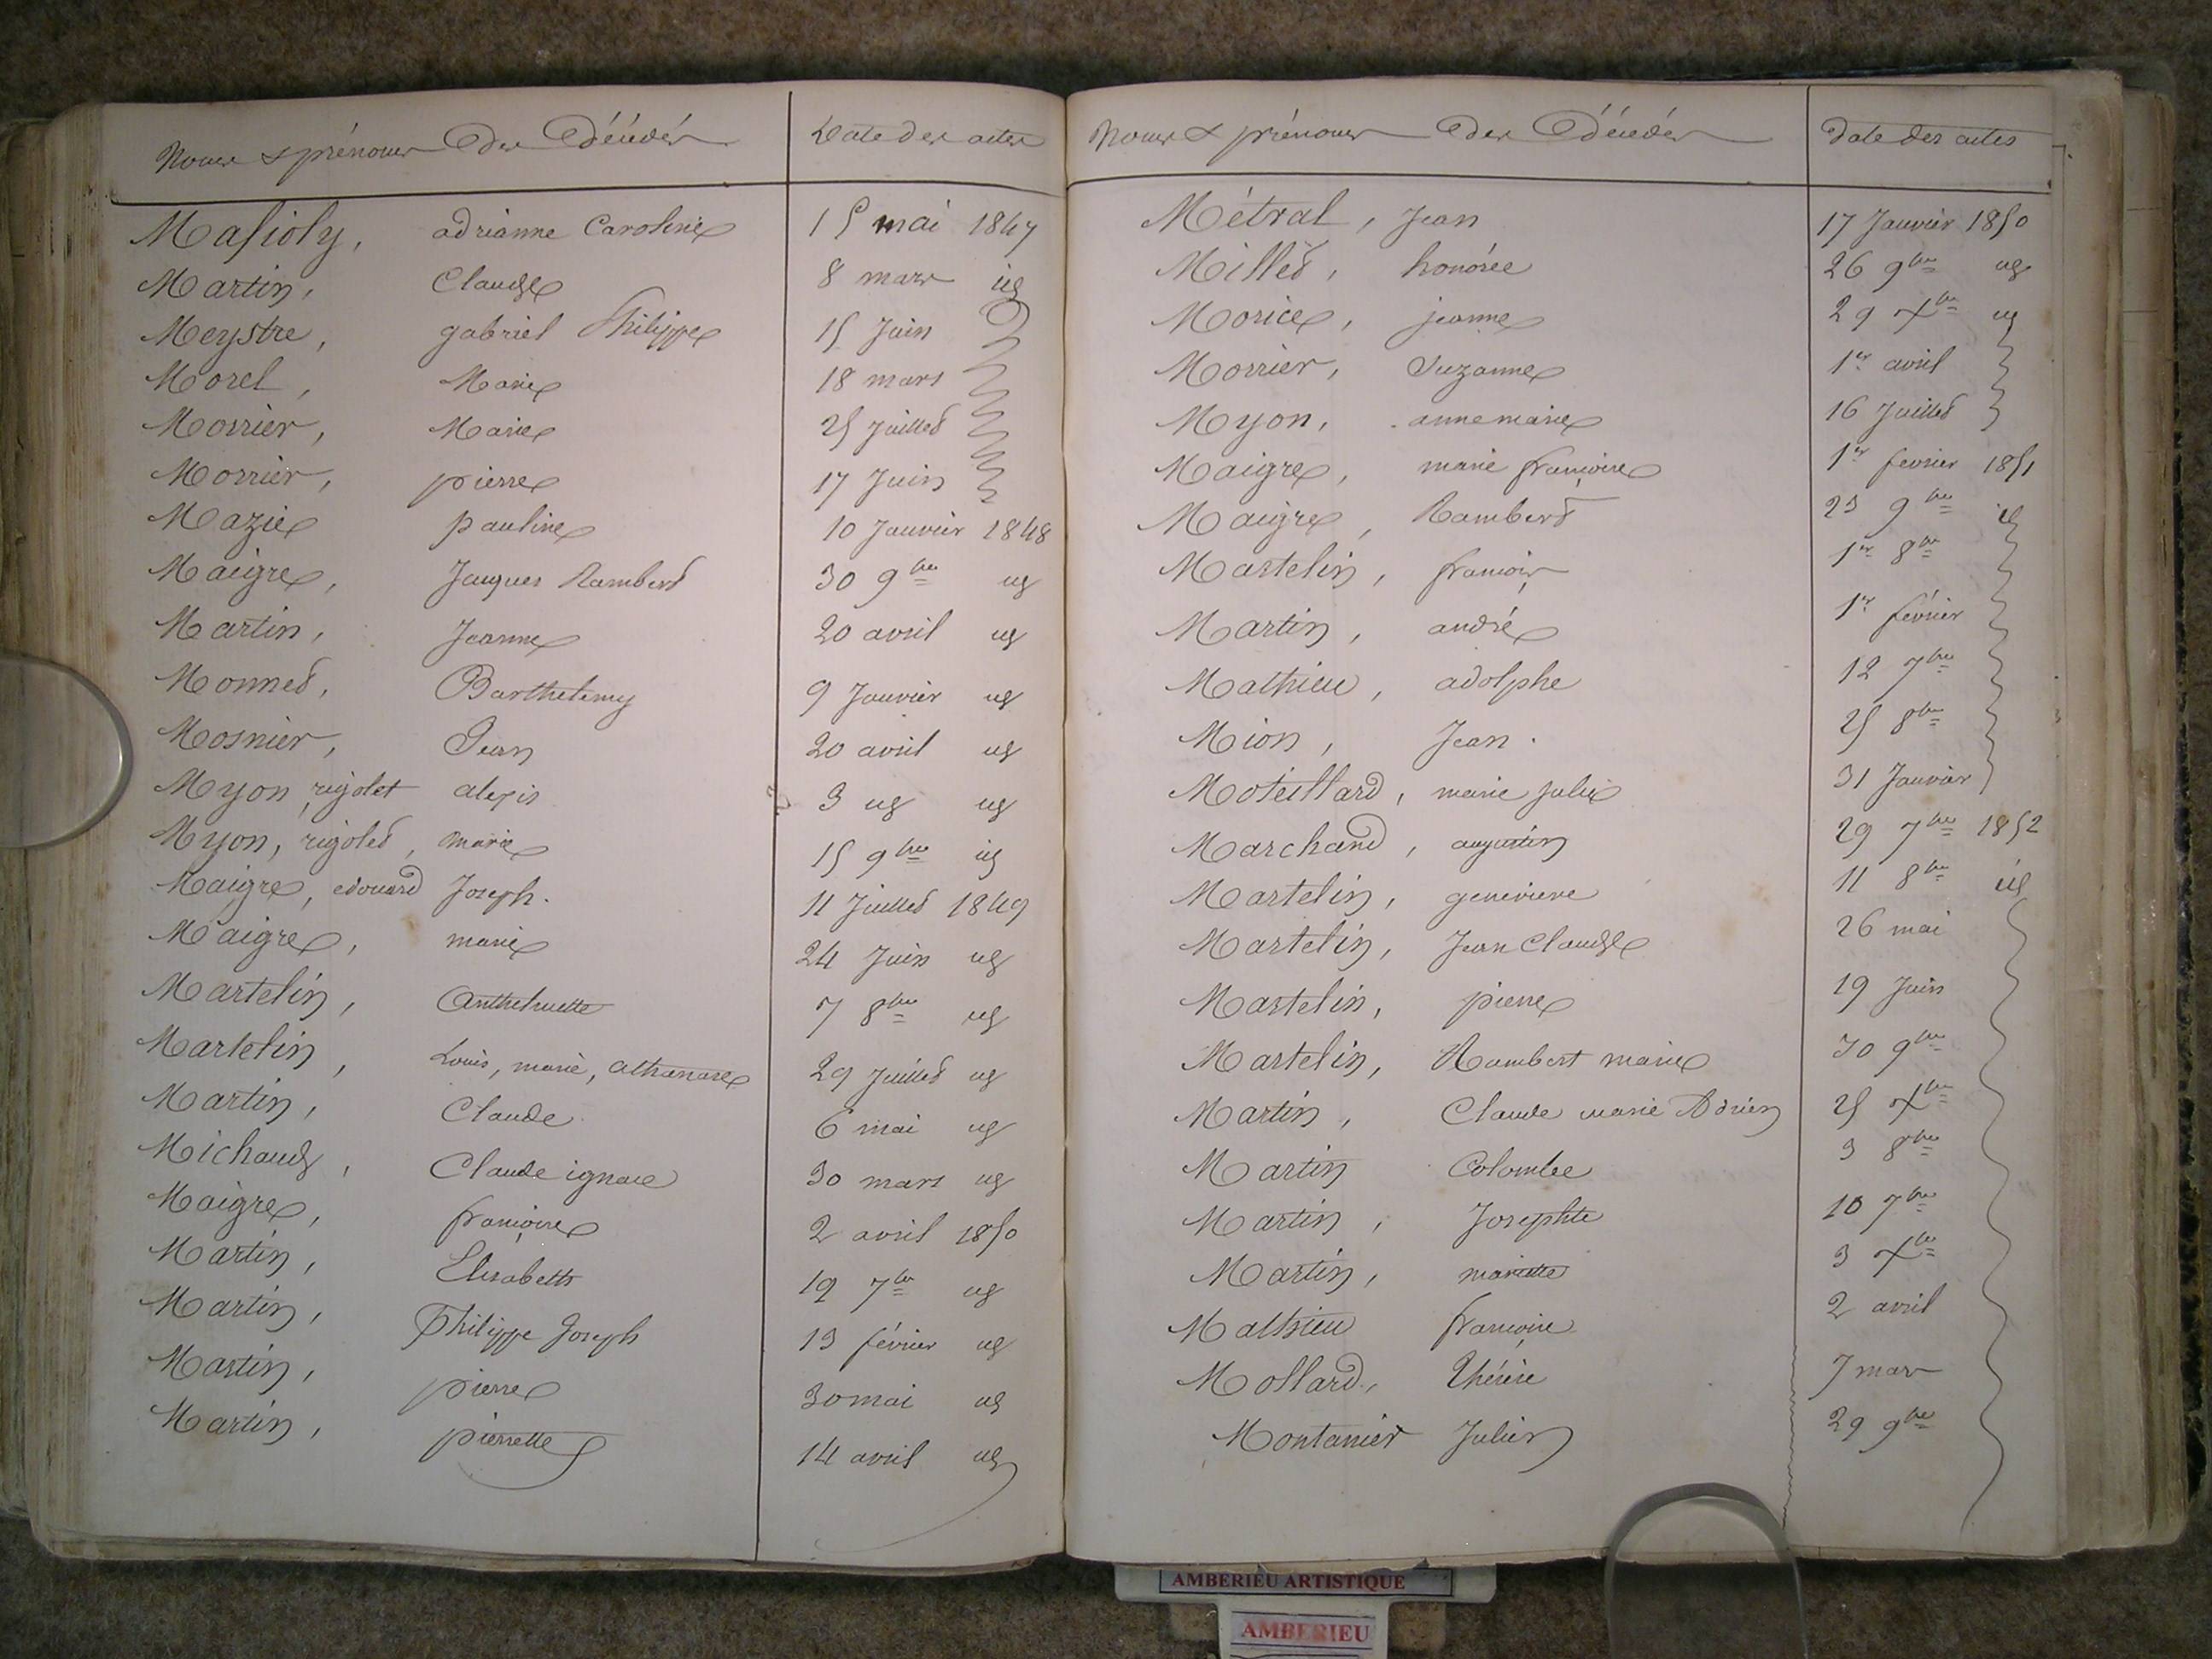 Noms & prénoms des Décédés Date des actes
Masioly, adrianne Caroline 15 mai 1847
Martin, Claude 8 mars id
Meystre, gabriel Philippe 15 Juin
Morel, Marie 18 mars
Morrier, Marie 25 Juillet
Morrier, pierre 17 Juin
Mazie pauline 10 Janvier 1848
Maigre, Jacques Rambert 30 9bre id
Martin, Jeanne 20 avril id
Monnet, Barthelemy 9 Janvier id
Mosnier, Jean 20 avril id
Myon rigolet alexis 3 id id
Myon, rigolet, marie 15 9bre id
Maigre, edouard Joseph. 11 Juillet 1849
Maigre, marie 24 Juin id
Martelin, Anthelmette 7 8bre id
Martelin, Louis, marie, athanase 29 Juillet id
Martin, Claude 6 mai id
Michaud, Claude ignace 30 mars id
Maigre, françoise 2 avril 1850
Martin, Elisabeth 19 7bre id
Martin, Philippe Joseph 13 février id
Martin, pierre 30 mai id
Martin, pierrette 14 avril id
Noms & prénoms des Décédés Date des actes
Métral, Jean 17 Janvier 1850
Millet, honorée 26 9bre id
Morice, jeanne 29 Xbre id
Morrier, Suzanne 1er avril
Myon, anne marie 16 Juillet
Maigre, marie françoise 1er fevrier 1851
Maigre, Rambert 23 9bre id
Martelin, françois 1er 8bre
Martin, andré 1er février
Mathieu, adolphe 12 7bre
Mion, Jean. 25 8bre
Moteillard, marie julie 31 Janvier
Marchand, augustin 29 7bre 1852
Martelin, genevieve 11 8bre id
Martelin, Jean Claude 26 mai
Martelin, pierre 19 Juin
Martelin, Rambert marie 30 9bre
Martin, Claude marie Adrien 25 Xbre
Martin Colombe 3 8bre
Martin, Josephte 10 7bre
Martin, mariette 3 Xbre
Mathieu françoise 2 avril
Mollard, Thérèse 7 mars
Montanier Julien 29 9bre
AMBERIEU ARTISTIQUE
AMBERIEU